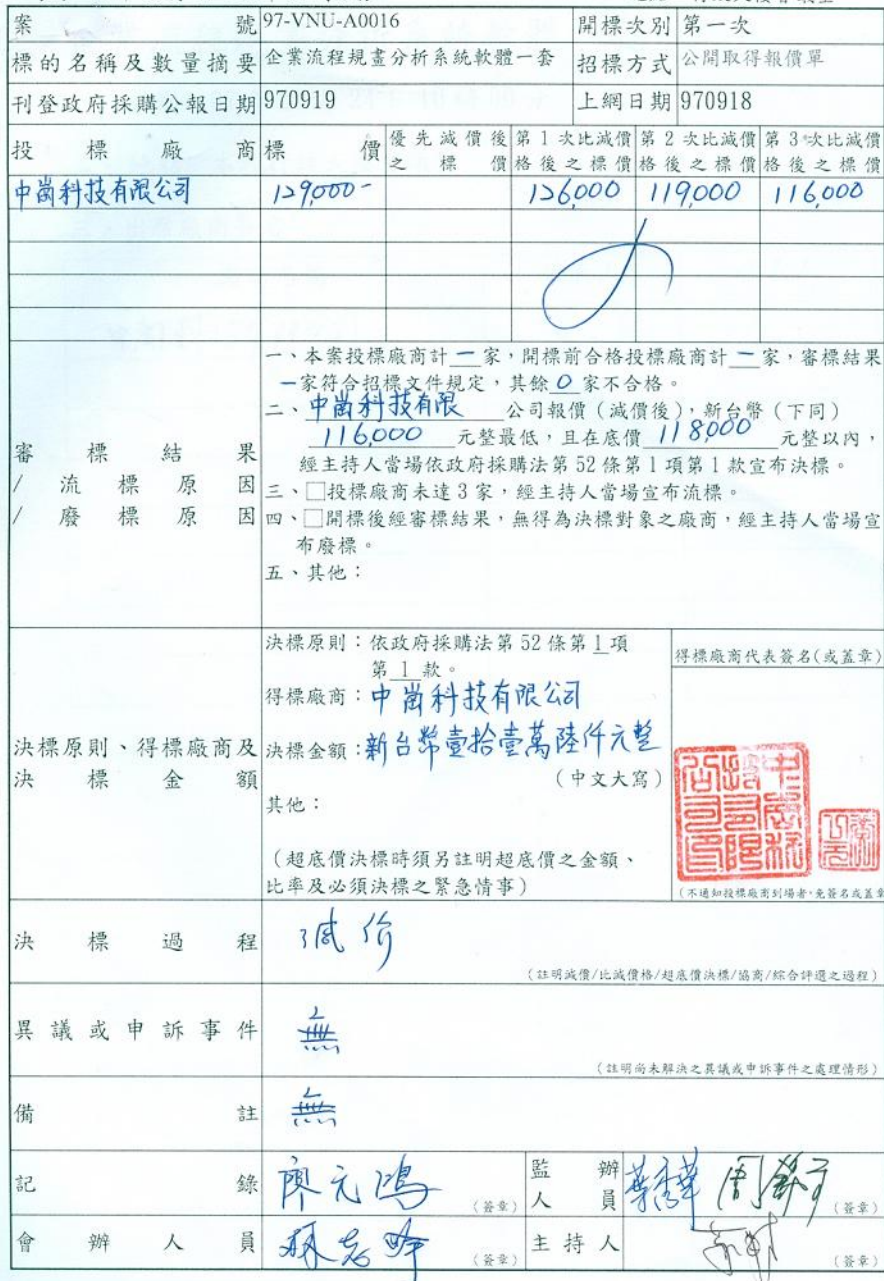 案號 97-VNU-A0016 開標次別 第一次
標的名稱及數量摘要 企業流程規畫分析系統軟體一套 招標方式 公開取得報價單
刊登政府採購公報日期 970919 上網日期 970918
投標廠商 標價 優先減價後之標價 第1次比減價格後之標價 第2次比減價格後之標價 第3次比減價格後之標價
中崗科技有限公司 129,000- 126,000 119,000 116,000
審標結果
/流標原因
/廢標原因
一、本案投標廠商計一家，開標前合格投標廠商計一家，審標結果
一家符合招標文件規定，其餘0家不合格。
二、中崗科技有限公司報價（減價後），新台幣（下同）
116,000元整最低，且在底價118,000元整以內，
經主持人當場依政府採購法第52條第1項第1款宣布決標。
三、□投標廠商未達3家，經主持人當場宣布流標。
四、□開標後經審標結果，無得為決標對象之廠商，經主持人當場宣
布廢標。
五、其他：
決標原則、得標廠商及
決標金額
決標原則：依政府採購法第52條第1項
第1款。
得標廠商：中崗科技有限公司
決標金額：新台幣壹拾壹萬陸仟元整
（中文大寫）
其他：
（超底價決標時須另註明超底價之金額、
比率及必須決標之緊急情事）
得標廠商代表簽名(或蓋章)
（不通知投標廠商到場者，免簽名或蓋章
決標過程 減价
（註明減價/比減價格/超底價決標/協商/綜合評選之過程）
異議或申訴事件 無
（註明尚未解決之異議或申訴事件之處理情形）
備註 無
記錄 廖元鴻 （簽章） 監辦人員 （簽章）
會辦人員 （簽章） 主持人 （簽章）